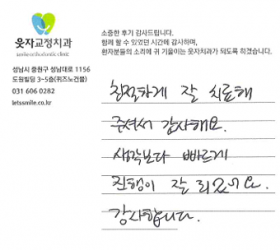 웃자교정치과
성남시 중원구 성남대로 1156
도림빌딩 3~5층(위즈노건물)
031 606 0282
letssmile.co.kr
소중한 후기 감사드립니다.
함께 할 수 있었던 시간에 감사하며,
환자분들의 소리에 귀 기울이는 웃자치과가 되도록 하겠습니다.
친절하게 잘 치료해
주셔서 감사해요.
생각보다 빠르게
진행이 잘 되었어요.
감사합니다.